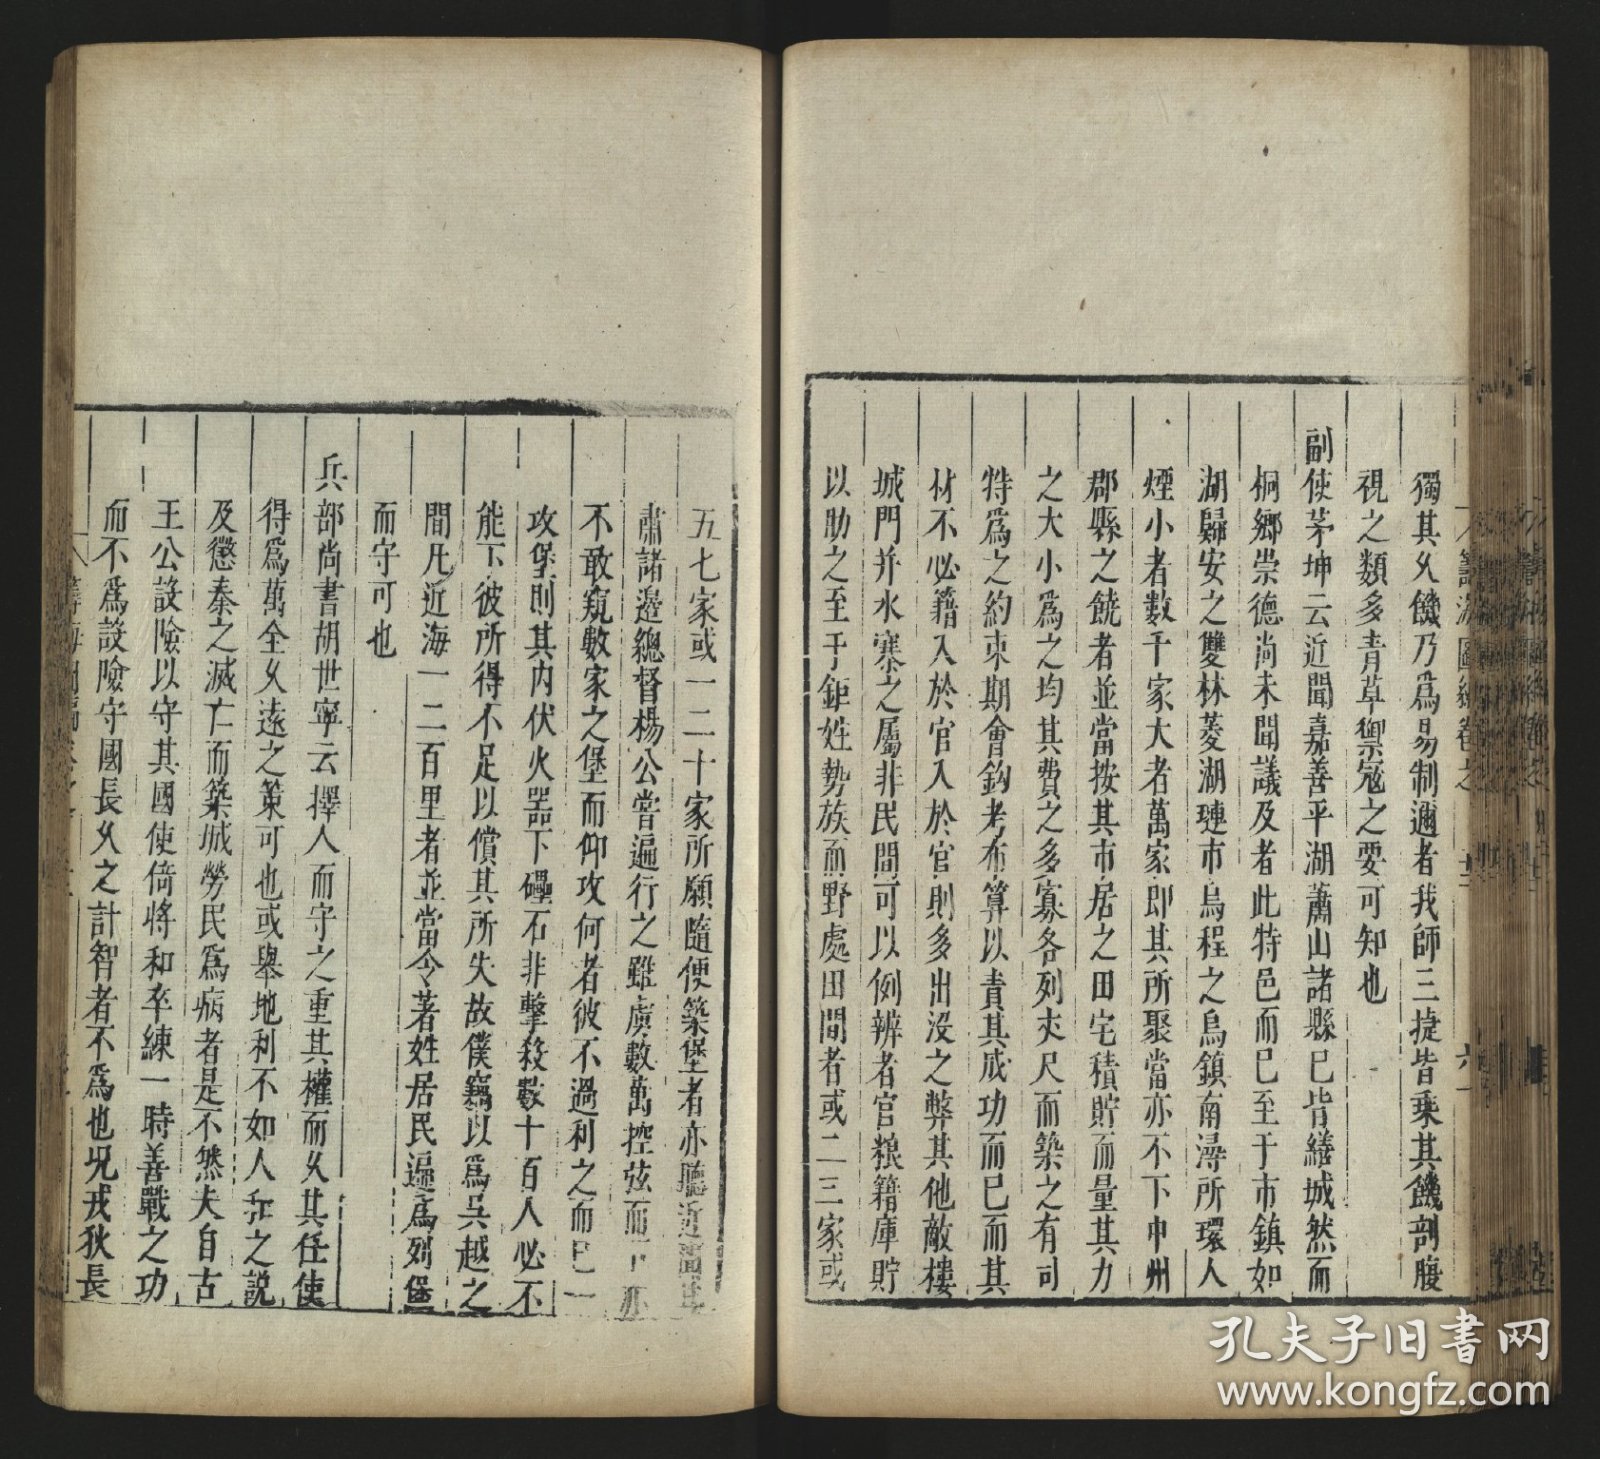 獨其乆饑乃爲易制邇者我師三捷皆乘其饑剖腹
視之類多青草禦寇之要可知也
副使茅坤云近聞嘉善平湖蕭山諸縣已皆繕城然而
桐鄉崇德尚未聞議及者此特邑而已至于市鎮如
湖歸安之雙林菱湖璉市烏程之烏鎮南潯所環人
煙小者數千家大者萬家即其所聚當亦不下中州
郡縣之饒者並當按其市居之田宅積貯而量其力
之大小爲之均其費之多寡各列丈尺而築之有司
特爲之約束期會鈎考布算以責其成功而已而其
材不必籍入於官入於官則多出沒之弊其他敵樓
城門并水寨之屬非民間可以例辨者官粮籍庫貯
以助之至于鉅姓勢族而野處田間者或二三家或
五七家或一二十家所願隨便築堡者亦聽近聞
肅諸邊總督楊公嘗遍行之雖虜數萬控弦而下亦
不敢窺數家之堡而仰攻何者彼不過利之而已一
攻堡則其内伏火器下礧石非擊殺數十百人必不
能下彼所得不足以償其所失故僕竊以爲吳越之
間凡近海一二百里者並當令著姓居民遍爲列堡
而守可也
兵部尚書胡世寧云擇人而守之重其權而乆其任使
得爲萬全乆遠之策可也或舉地利不如人和之說
及懲秦之滅亡而築城勞民爲病者是不然夫自古
王公設險以守其國使倚將和卒練一時善戰之功
而不爲設險守國長乆之計智者不爲也況戎狄長
孔夫子旧书网
www.kongfz.com